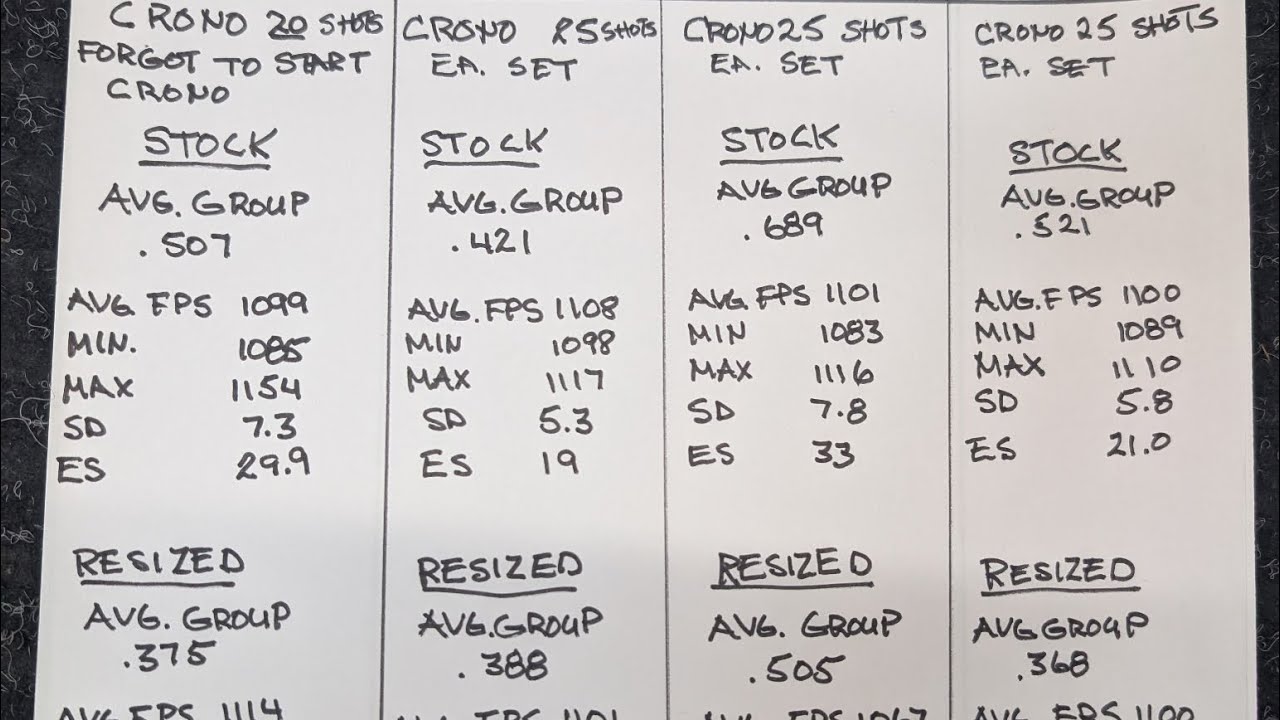 CRONO 20 SHOTS
FORGOT TO START
CRONO
STOCK
AVG. GROUP
.507
AVG. FPS 1099
MIN. 1085
MAX 1154
SD 7.3
ES 29.9
RESIZED
AVG. GROUP
.375
AVG. FPS 1114
CRONO 25 SHOTS
EA. SET
STOCK
AVG. GROUP
.421
AVG. FPS 1108
MIN 1098
MAX 1117
SD 5.3
ES 19
RESIZED
AVG. GROUP
.388
AVG. FPS 1101
CRONO 25 SHOTS
EA. SET
STOCK
AVG GROUP
.689
AVG. FPS 1101
MIN 1083
MAX 1116
SD 7.8
ES 33
RESIZED
AVG. GROUP
.505
AVG. FPS 1067
CRONO 25 SHOTS
EA. SET
STOCK
AVG. GROUP
.521
AVG. FPS 1100
MIN 1089
MAX 1110
SD 5.8
ES 21.0
RESIZED
AVG GROUP
.368
AVG. FPS 1100